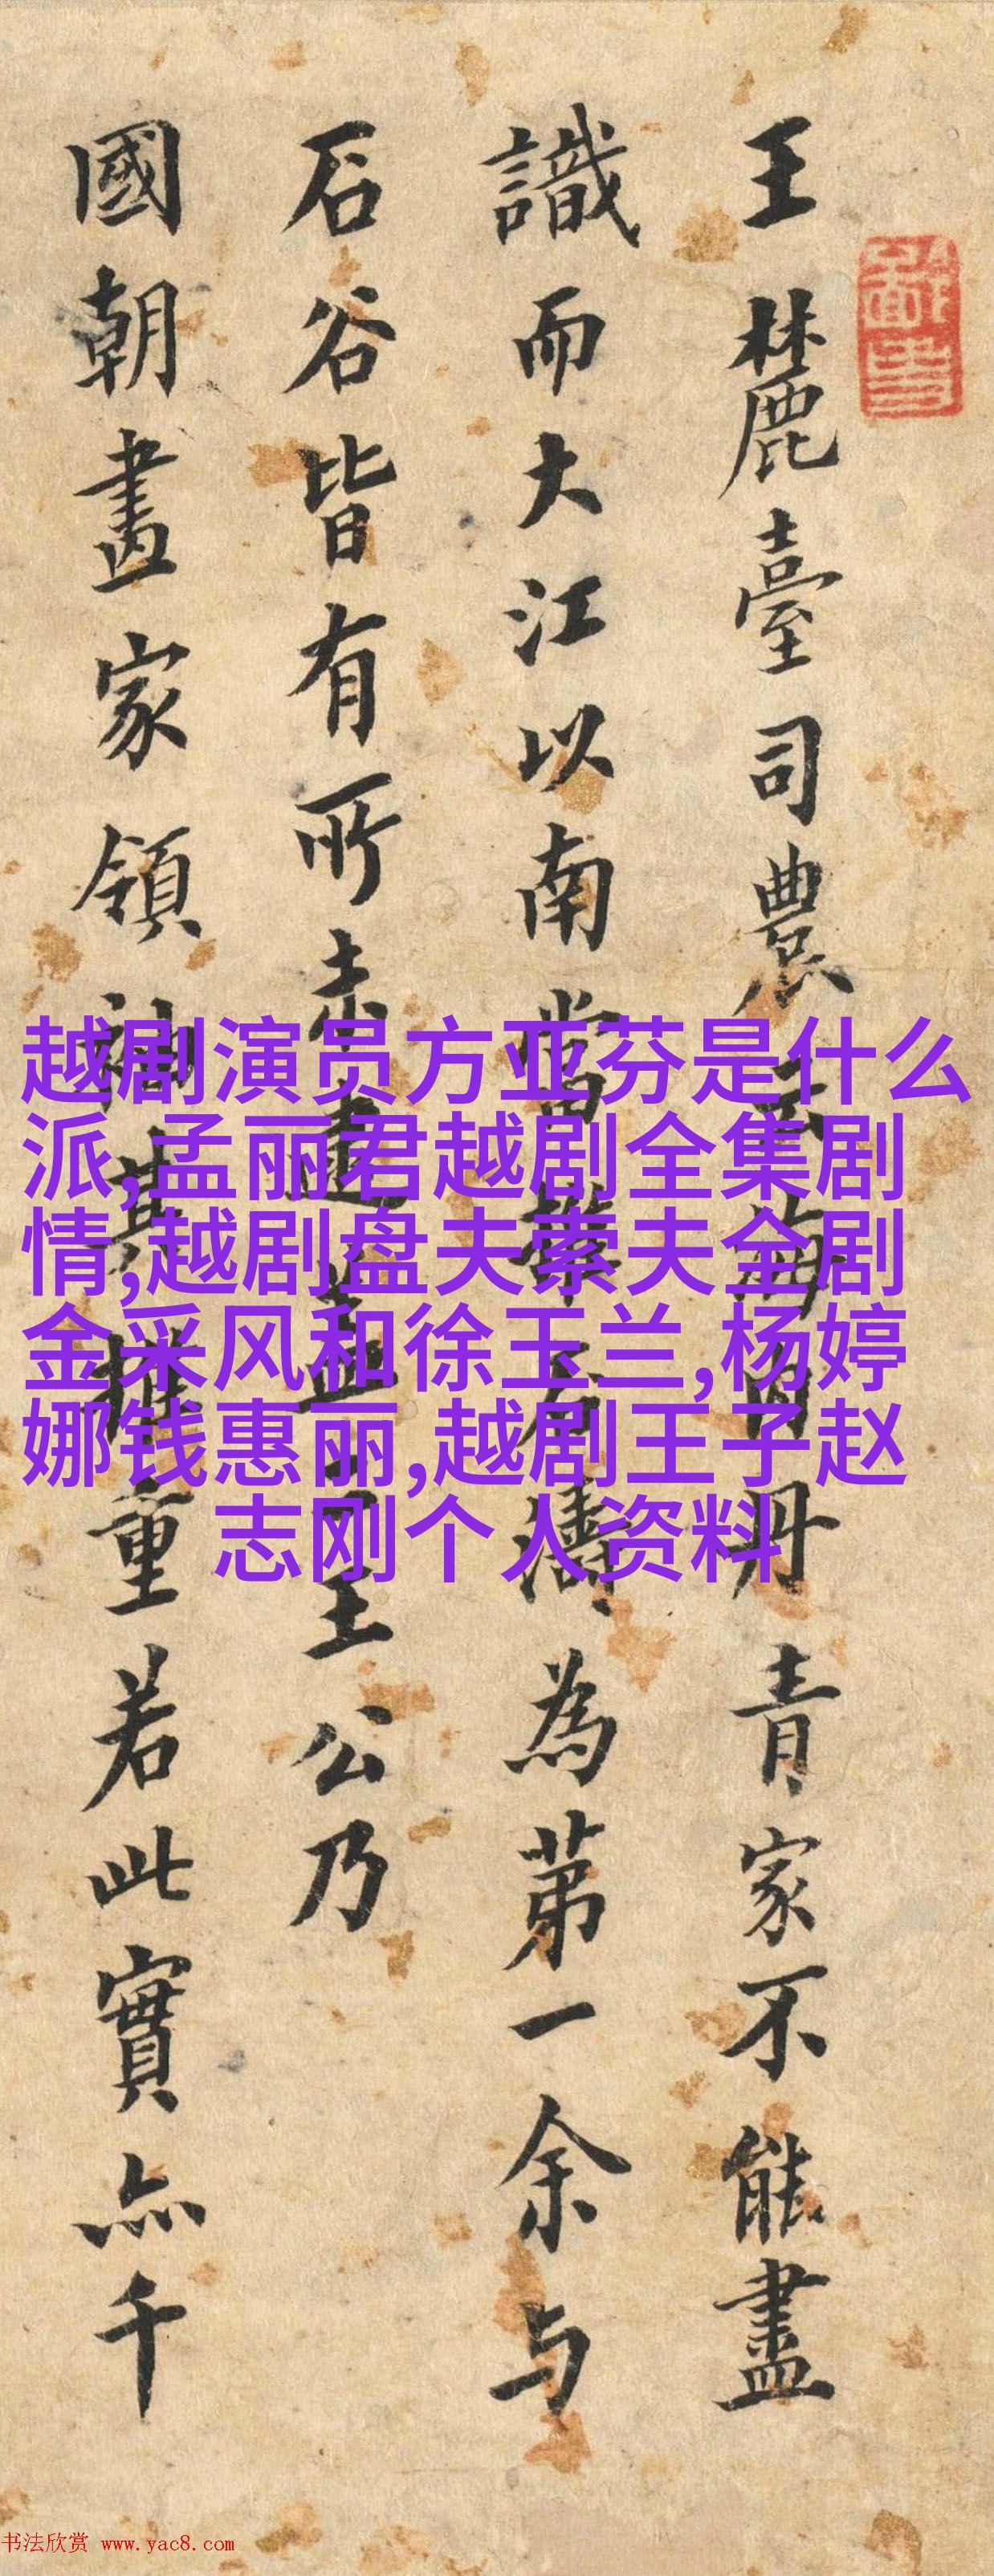 王麓臺司農云海內丹青家不能盡
識而大江以南當推石濤為第一余与
石谷皆有所未逮盖二王公乃
國朝畫家領袖其推重若此實亦千
越剧演员方亚芬是什么
派,孟丽君越剧全集剧
情,越剧盘夫索夫全剧
金采风和徐玉兰,杨婷
娜钱惠丽,越剧王子赵
志刚个人资料
书法欣赏 www.yac8.com